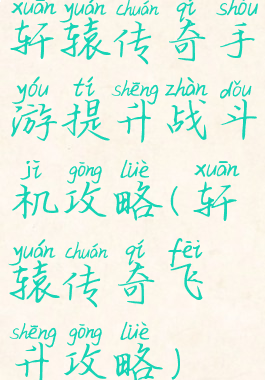 xuān yuán chuán qí shǒu
轩辕传奇手
yóu tí shēng zhàn dǒu
游提升战斗
jī gōng lüè xuān
机攻略(轩
yuán chuán qí fēi
辕传奇飞
shēng gōng lüè
升攻略)